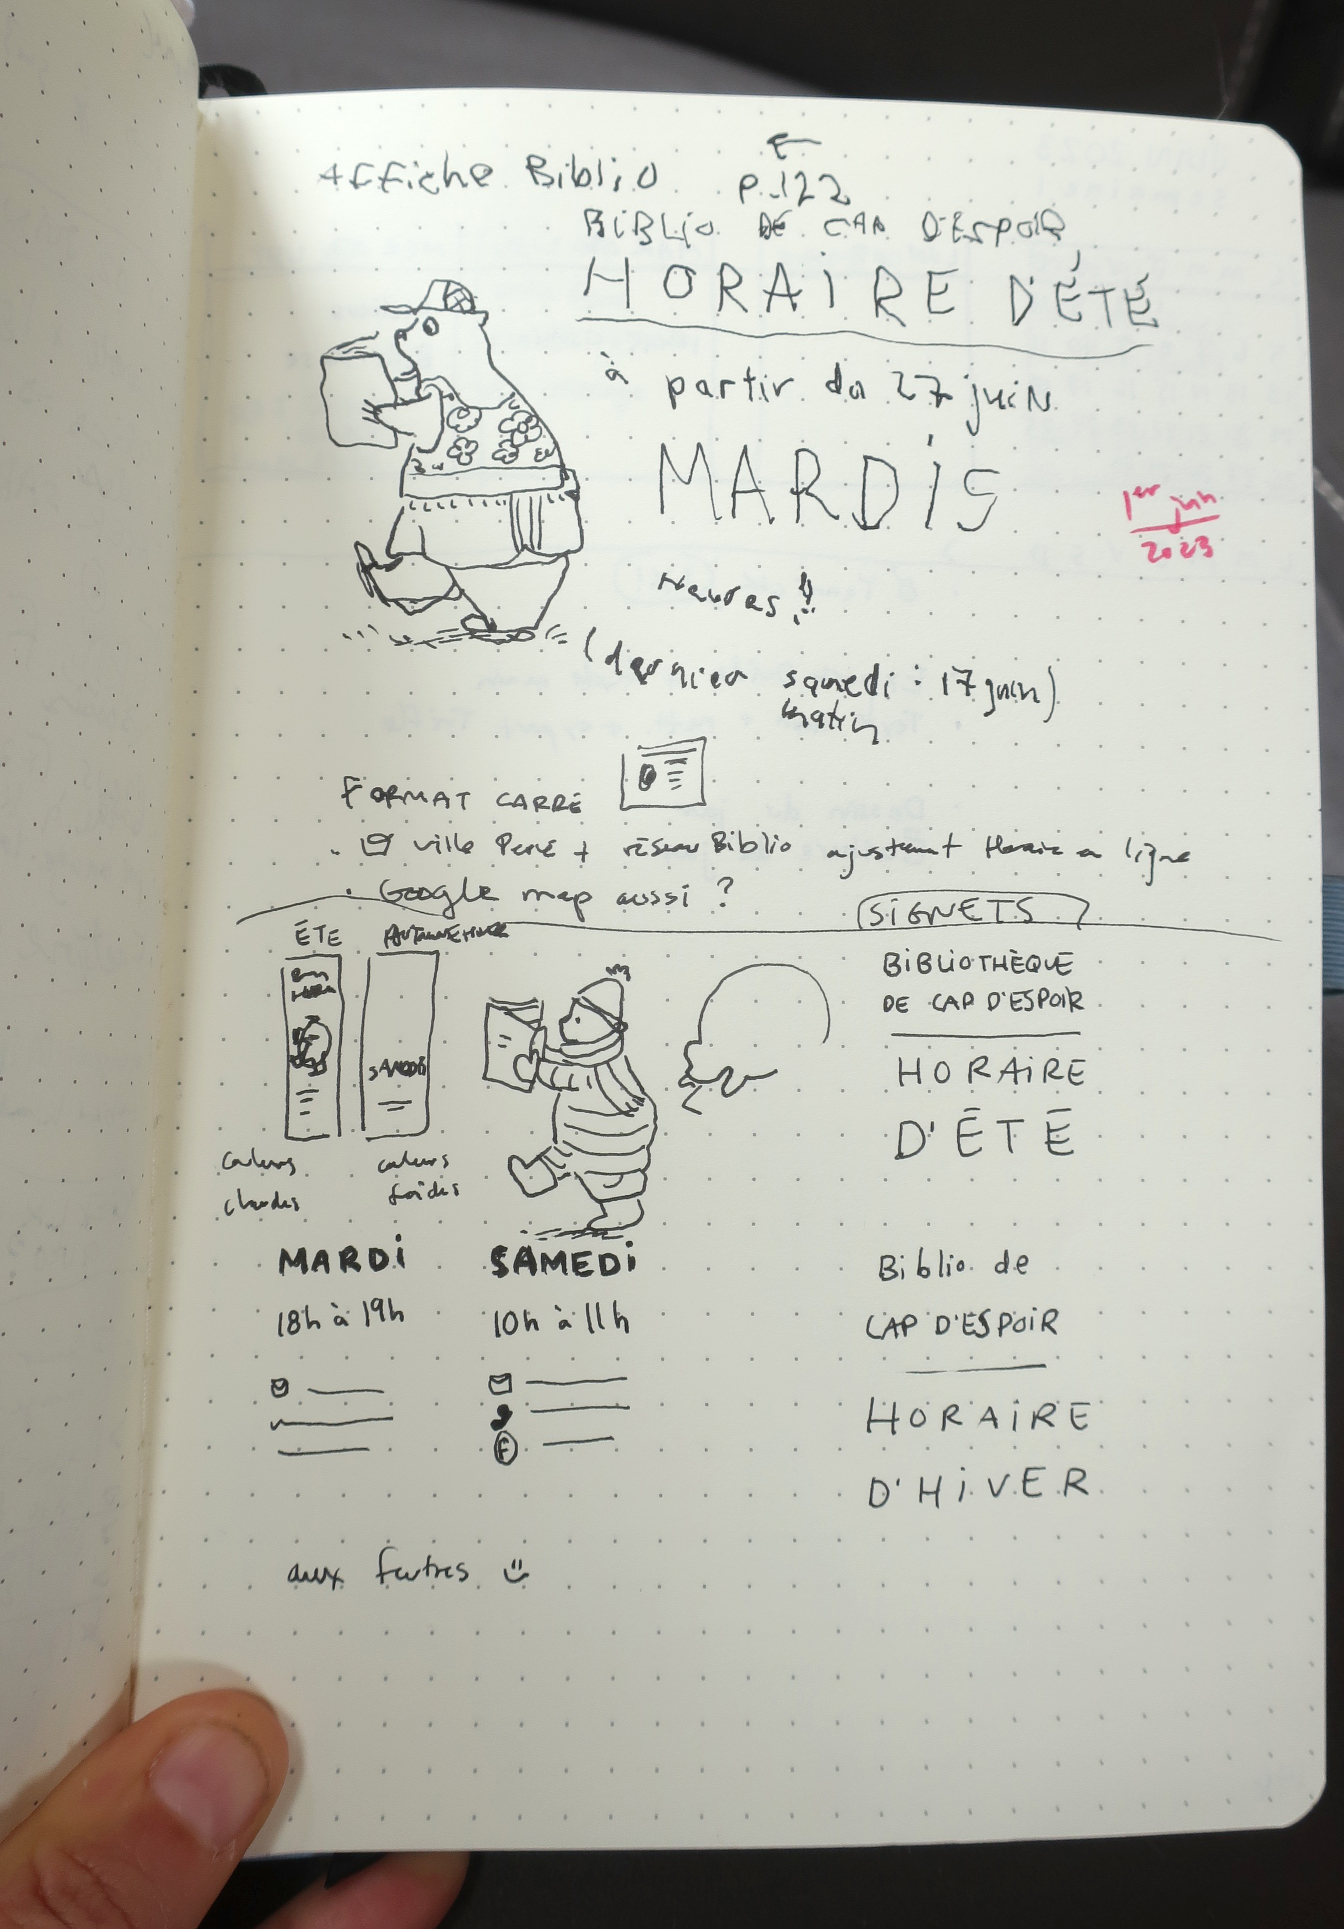 Affiche Biblio p.122
BiBLiO DE CAP D'ESPOiR
HORAiRE D'ÉTÉ
à partir du 27 juin
MARDiS
1er juin
2023
Heures
(dernier samedi : 17 juin)
matin
FORMAT CARRÉ
ville Percé + réseau Biblio ajustement Horaire en ligne
• Google map aussi ?
SiGNETS
ÉTÉ AUTOMNE HIVER
BiBLiOTHÈQUE
DE CAP D'ESPOiR
HORAiRE
D'ÉTÉ
SAMEDi
couleurs couleurs
chaudes froides
MARDi SAMEDi
18h à 19h 10h à 11h
F
Biblio de
CAP D'ESPOiR
HORAiRE
D'HiVER
aux feutres